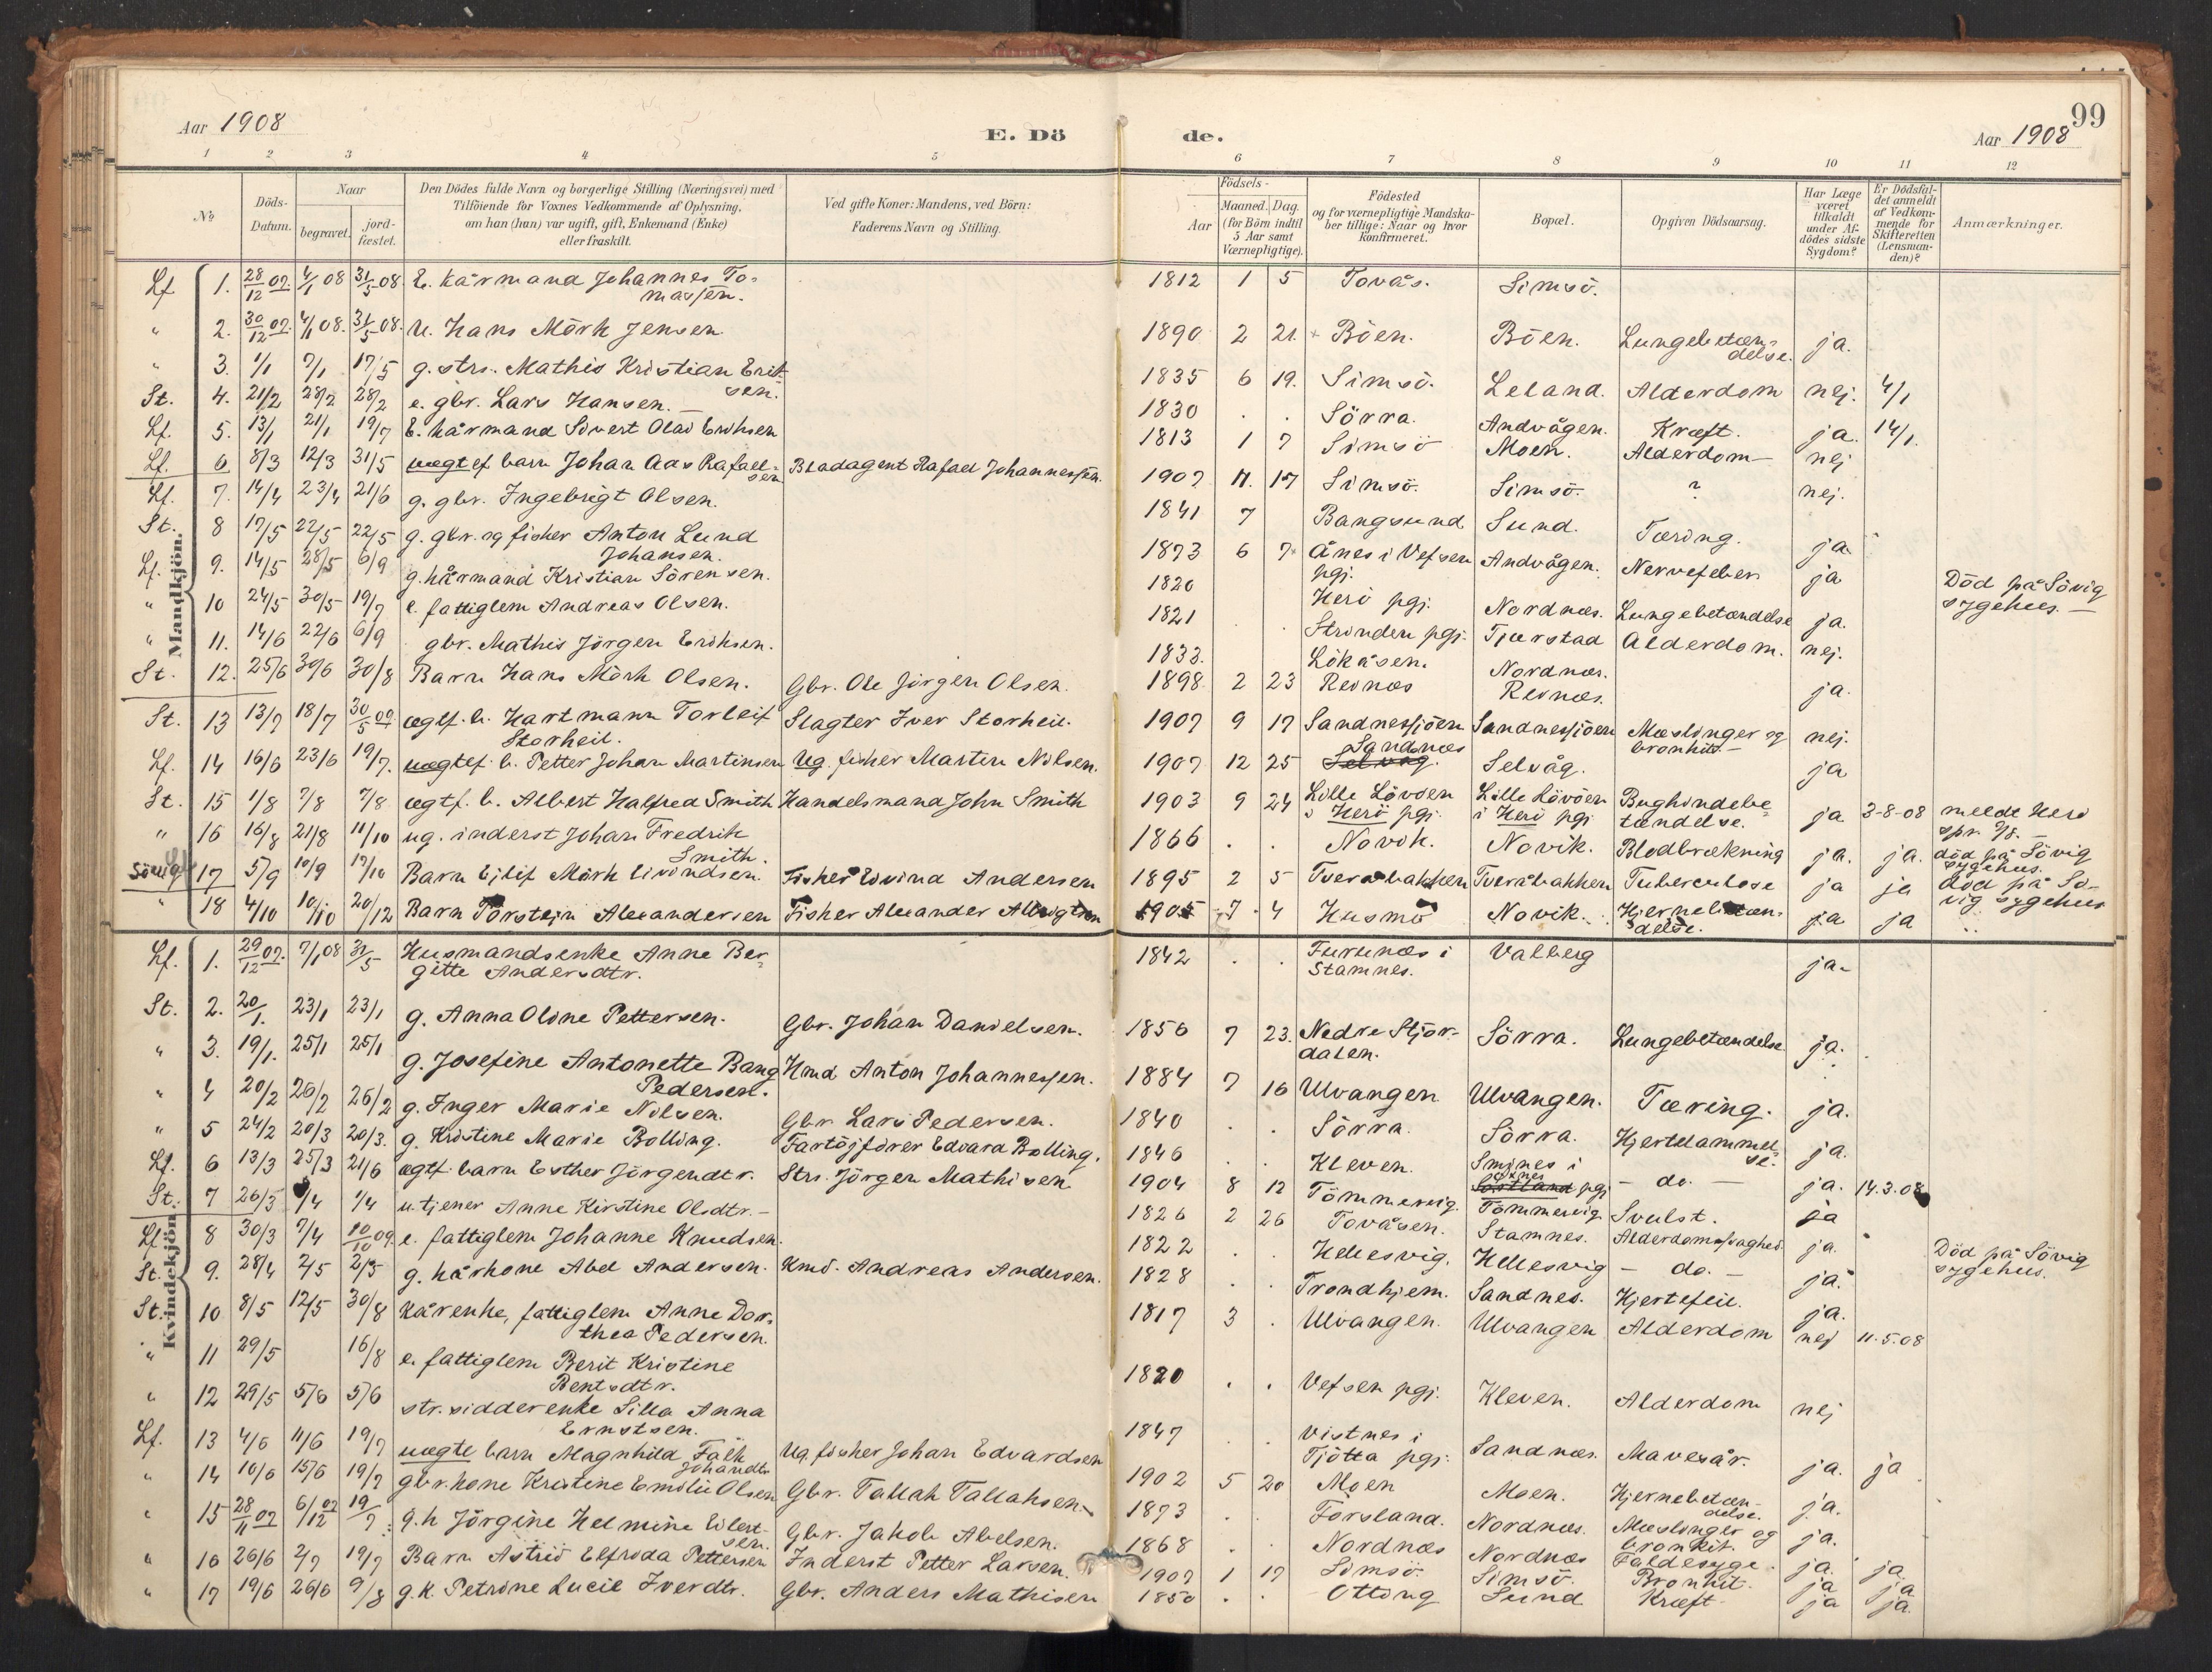 Aar 1908
E. Dö
de.
99
Aar 1908
1 2 3 4 5 6 7 8 9 10 11 12
No
Döds-
Datum.
Naar
begravet.
jord-
fæstet.
Den Dödes fulde Navn og borgerlige Stilling (Næringsvei) med
Tilföiende for Voxnes Vedkommende af Oplysning.
om han (hun) var ugift, gift, Enkemand (Enke)
eller fraskilt.
Ved gifte Koner: Mandens, ved Börn:
Faderens Navn og Stilling.
Födsels-
Aar
Maaned. Dag.
(for Börn indtil
5 Aar samt
Værnepligtige).
Födested
og for værnepligtige Mandska-
ber tillige: Naar og hvor
konfirmeret.
Bopæl.
Opgiven Dödsaarsag.
Har Læge
været
tilkaldt
under Af-
dödes sidste
Sygdom?
Er Dödsfal-
det anmeldt
af Vedkom-
mende for
Skifteretten
(Lensman-
den)?
Anmærkninger.
Mandkjön.
Lf 1. 28/12 07. 4/1 08 31/5 08. E. kårmand Johannes To-
massen. 1812 1 5 Tovås. Simsö.
" 2. 30/12 07. 4/1 08. 31/5 08. U. Hans Mörk Jensen 1890 2 21. Böen. Böen. Lungebetæn-
delse. ja.
" 3. 1/1 7/1 17/5 g. strs. Mathis Kristian Erik-
sen. 1835 6 19. Simsö. Leland. Alderdom nej. 4/1
St. 4. 21/2 28/2 28/2 e. gbr. Lars Hansen. 1830 . . Sörra. Andvågen. Kræft. ja. 14/1.
Lf. 5. 13/1 21/1 19/7 E. kårmand Sivert Olai Eriksen 1813 1 7 Simsö Moen. Alderdom nej
Lf. 6 8/3 12/3 31/5 uægtef barn Johan Aas Rafael-
sen Bladagent Rafael Johannessen. 1907 11. 17 Simsö. Simsö. ? nej.
Lf. 7. 14/4 23/4 21/6 g. gbr. Ingebrigt Olsen. 1841 7 Bangsund Sund. Tæring. ja
St. 8 17/5 22/5 22/5 g. gbr. og fisker Anton Lund
Johansen. 1873 6 7 Ånes i Vefsen
pgj. Andvågen. Nervefeber ja
Lf. 9. 14/5 28/5 6/9 g. kårmand Kristian Sörensen. 1820 Herö pgj. Nordnæs. Lungebetændelse ja. Död på Sövig
sygehus.
" 10 24/5 30/5 19/7 e. fattiglem Andreas Olsen. 1821 . . Strinden pgj. Tjærstad Alderdom. nej.
" 11. 14/6 22/6 6/9 gbr. Mathis Jörgen Eriksen. 1833. Lökåsen. Nordnæs.
St. 12. 25/6 30/6 30/8 Barn Hans Mörk Olsen. Gbr. Ole Jörgen Olsen. 1898 2 23 Reinæs Reinæs. ja.
St. 13 13/7 18/7 30/5 09. ægtf. b. Hartmann Torleif
Storheil. Slagter Iver Storheil. 1907 9 17 Sandnessjöen Sandnessjöen Mæslinger og
bronkit nej.
Lf. 14 16/6 23/6 19/7. uægtef. b. Petter Johan Martinsen Ug. fisker Martin Nilsen. 1907 12 25 Sandnæs
Selvåg. Selvåg. ja
St. 15 1/8 7/8 7/8 ægtf. b. Albert Halfred Smith Handelsmand John Smith 1903 9 24 Lille Lövöen
i Herö pgj. Lille Lövöen
i Herö pgj. Bughindebe-
tændelse. ja 3-8-08 meldt Herö
spr. 7/8.
" 16 16/8 21/8 11/10 ug. inderst Johan Fredrik
Smith. 1866 . . Novik. Novik. Blodbrækning ja. ja. död på Sövig
sygehus.
Sövig 17 5/9 10/9 17/10 Barn Ejlif Mörk Eivindsen. Fisker Eivind Andersen 1895 2 5 Tveråbakken Tveråbakken Tuberculose ja ja död på Sö-
vig sygehus
" 18 4/10 10/10 20/12 Barn Torstein Alexandersen Fisker Alexander Albrigtsen 1905 7 4 Husmö Novik. Hjernebetæn-
delse. ja ja "
Kvindekjön
Lf. 1. 29/12 07. 7/1 08 31/5 Husmandsenke Anne Ber-
gitte Andersdtr. 1842 . . Furenæs i
Stamnes. Valberg ja
St. 2. 20/1. 23/1 23/1 g. Anna Oline Pettersen. Gbr. Johan Danielsen. 1856 7 23. Nedre Stjör-
dalen. Sörra. Lungebetændelse ja.
" 3. 19/1. 25/1 25/1 g. Josefine Antonette Bang
Pedersen. Hmd Anton Johannessen. 1884 7 16 Ulvangen Ulvangen. Tæring. ja.
" 4 20/2 26/2 26/2 g. Inger Marie Nilsen. Gbr. Lars Pedersen. 1840 . . Sörra. Sörra. Hjertelammel-
se. ja.
" 5 24/2 20/3 20/3. g. Kristine Marie Bolling. Fartöjförer Edvard Bolling. 1846 . . Kleven. Smines i
pgj do. ja. 14.3.08
Lf. 6 13/3 25/3 21/6 ægtf. barn Esther Jörgendtr. Strs. Jörgen Mathisen 1904 8 12 Tömmervig. Tömmervig Svulst. ja
St. 7 26/3 1/4 1/4 u. tjener Anne Kirstine Olsdtr. 1826 2 26 Tovåsen. Stamnes. Alderdomssvaghed ja.
Lf 8 30/3 7/4 10/10 09. e. fattiglem Johanne Knudsen. 1822 . . Hellesvig. Hellesvig do. ja. Död på Sövig
sygehus.
St. 9. 28/4 2/5 2/5 g. kårkone Abel Andersen. Kmd. Andreas Andersen. 1828 . . Trondhjem. Sandnes. Hjertefeil. ja.
St. 10 8/5 12/5 30/8 kårenke, fattiglem Anne Dor-
thea Pedersen. 1817 3 . Ulvangen. Ulvangen Alderdom nej 11.5.08
" 11 29/5 16/8 e. fattiglem Berit Kristine
Bentsdtr. 1820 . . Vefsen pgj. Kleven. Alderdom nej
" 12 29/5 5/6 5/6 str. sidderenke Silla Anna
Ernstsen. 1847 . . Vistnes i
Tjötta pgj. Sandnæs. Mavesår. ja. ja
Lf. 13 4/6 11/6 19/7 uægte barn Magnhild Falk
Johandtr Ug. fisker Johan Edvardsen 1902 5 20 Moen Moen. Hjernebetæn-
delse. ja.
" 14 10/6 15/6 19/7 gbr. kone Kristine Emilie Olsen Gbr. Tallak Tallaksen. 1873 . . Forsland. Nordnæs. Mæslinger og
bronkit. ja.
" 15 28/11 07 6/12 07 19/7 g. k Jörgine Helmine Eilert-
sen. Gbr. Jakob Abelsen. 1868 . . Nordnæs Nordnæs Faldesyge. ja. ja.
" 16 26/6 2/7 19/7 Barn Astrid Elfrida Pettersen Inderst Petter Larsen. 1907 1 17 Simsö. Simsö. Bronkit. ja ja
" 17 19/6 26/6 9/8 g. k. Petrine Lucie Iverdtr. Gbr. Anders Mathisen 1850 . . Otting Sund Kræft ja ja.